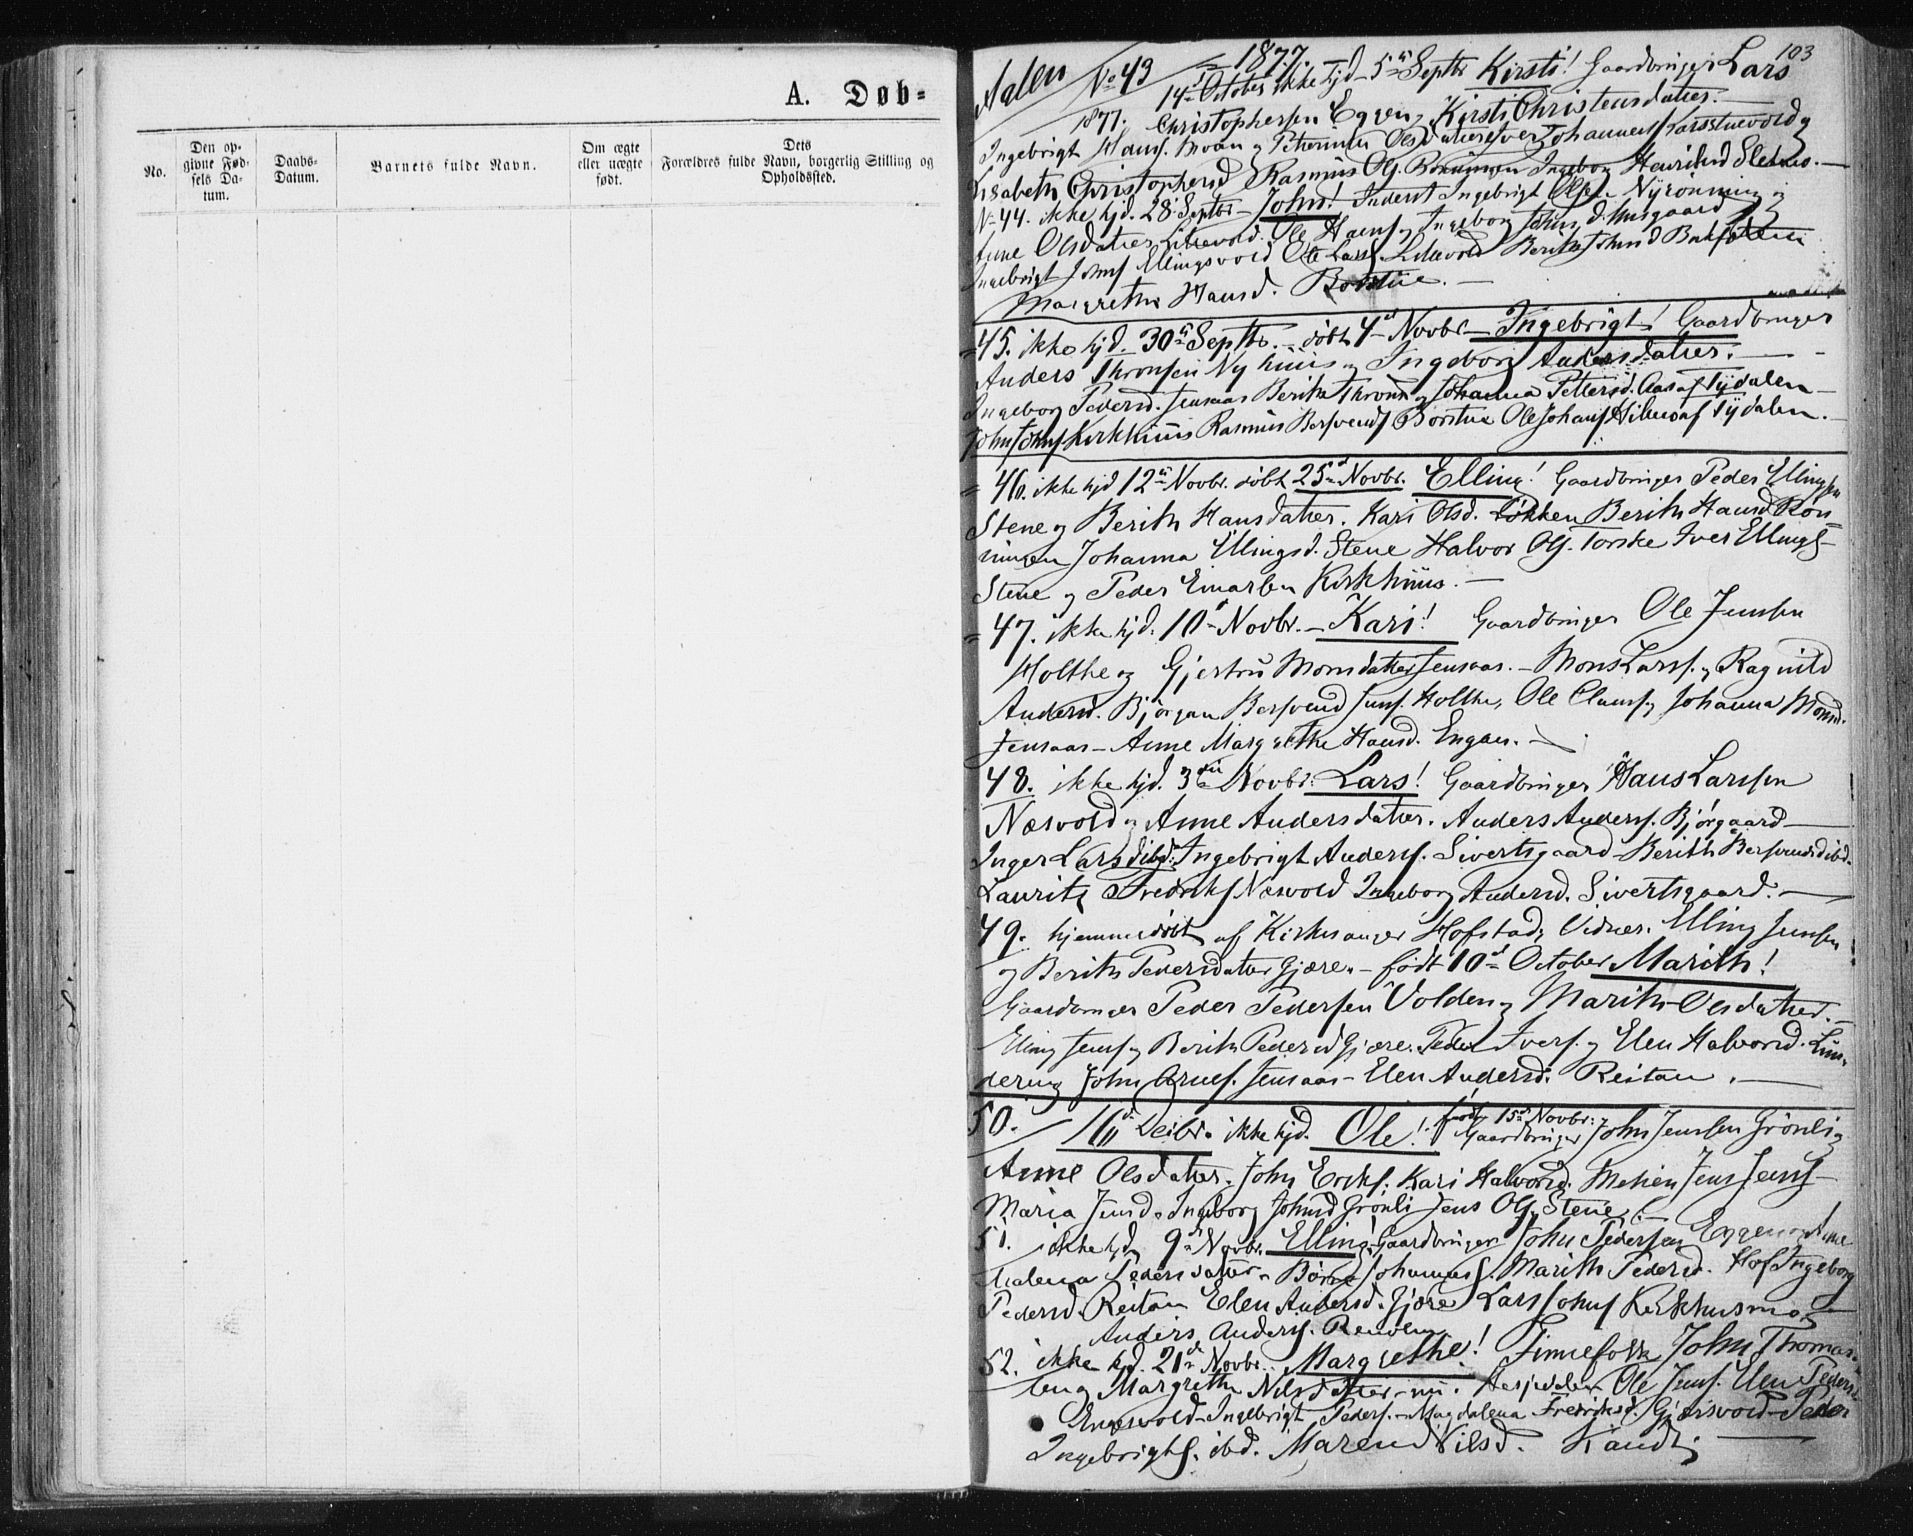 A. Døb=
No.
Den op-
givne Fød-
sels Da-
tum.
Daabs-
Datum.
Barnets fulde Navn.
Om ægte
eller uægte
født.
Dets
Forældres fulde Navn, borgerlig Stilling og
Opholdssted.
103
Aalen No 43 1877.
14de October ikke hjd. 5te Septbr Kirsti! Gaardbruger Lars
1877. Christophersen Eggen, Kirsti Christensdatter.
Ingebrigt Hansf. Moan og Olsdatter Johannesf.
Lisabeth Christophersd. Rasmus Olf. Ronningen Ingebor Henriksd.
No 44. ikke hjd. 28 Septbr John! Inderst Ingebrigt Olsen Nyrønning og
Anne Olsdatter Litlevold. Ole Hansf. og Ingeborg Johnsd. Husgaard
Ingebrigt Johnsf Ellingsvold Ole Larsf. Lillevold Berith Johnsd
Margrethe Hansd. Borstue.
45. ikke hjd. 30te Septbr. døbt 4de Novbr Ingebrigt! Gaardbruger
Anders Thronsen Nyhuus og Ingeborg Andersdatter.
Ingeborg Pedersd. Jensaas Berith Thronsd. og Johanna Pettersd. Aas af Tydalen
John Johnsf Kirkhuus Rasmus Bersvendsf Borstue Ole Johansf Hilmo af Tydalen.
46. ikke hjd 12te Novbr. døbt 25de Novbr. Elling! Gaardbruger Peder Ellingsen
Stene og Berith Hansdatter. Kari Olsd. Løkken Berith Hansd Røn-
ningen Johanna Ellingsd. Stene Halvor Olf. Torske Iver Ellingf.
Stene og Peder Einarsen Kirkhuus.
47. ikke hjd. 10de Novbr. Kari! Gaardbruger Ole Jensen
Holthe og Gjertru Monsdatter Jensaas. Mons Larsf. og Ragnild
Andersd. Bjørgan Bersvend Jensf. Holthe, Ole Clausf. og Johanna Monsd.
Jensaas Anne Margrethe Hansd. Engan.
48. ikke hjd. 3die Novbr. Lars! Gaardbruger Hans Larssen
Næsvold og Anne Andersdatter. Anders Andersf. Bjørgaard
Inger Larsd ibd. Ingebrigt Andersf. Sivertsgaard Berith Bersvendsd ibd.
Lauritz Fredriksf Næsvold Ingeborg Andersd. Sivertsgaard.
49. hjemmedøbt af Kirkesanger Hofstad, Vidner: Elling Jensen
og Berith Pedersdatter Gjære. født 10de October Marith!
Gaardbruger Peder Pedersen Volden og Marith Olsdatter.
Elling Jensf. og Berith Pedersd Gjære. Peder Iversf. og Elen Halvorsd. Lun-
dening John Arnesf. Jensaas Elen Andersd. Reitan.
50. 16de Decbr. ikke hjd. Ole! født 15de Novbr: Gaardbruger John Jenssen Grønli og
Anne Olsdatter. John Eriksf. Kari Halvorsd. Mehen Jens Jensf
Maria Jensd. Ingeborg Johnsd Grønli Jens Olf. Stene.
51. ikke hjd. 9de Novbr. Elling! Gaardbruger John Pedersen Engen og Anne
Malena Pedersdatter. Børre Johannesf. Marith Pedersd. Hof Ingeborg
Pedersd. Reitan Elen Andersd. Gjære Lars Johnsf Kirkhusmo
Anders Andersf. Renolen
52. ikke hjd. 21de Novbr. Margrethe! Finnefolk John Thomas-
sen og Margrethe Nilsdatter. Ole Jensf. Elen Peders.
Engesvold Ingebrigt Pedersf. Magdalena Fredriksd. Gjæresvold Peder
Ingebrigtsf. ibd. Maren Nilsd.